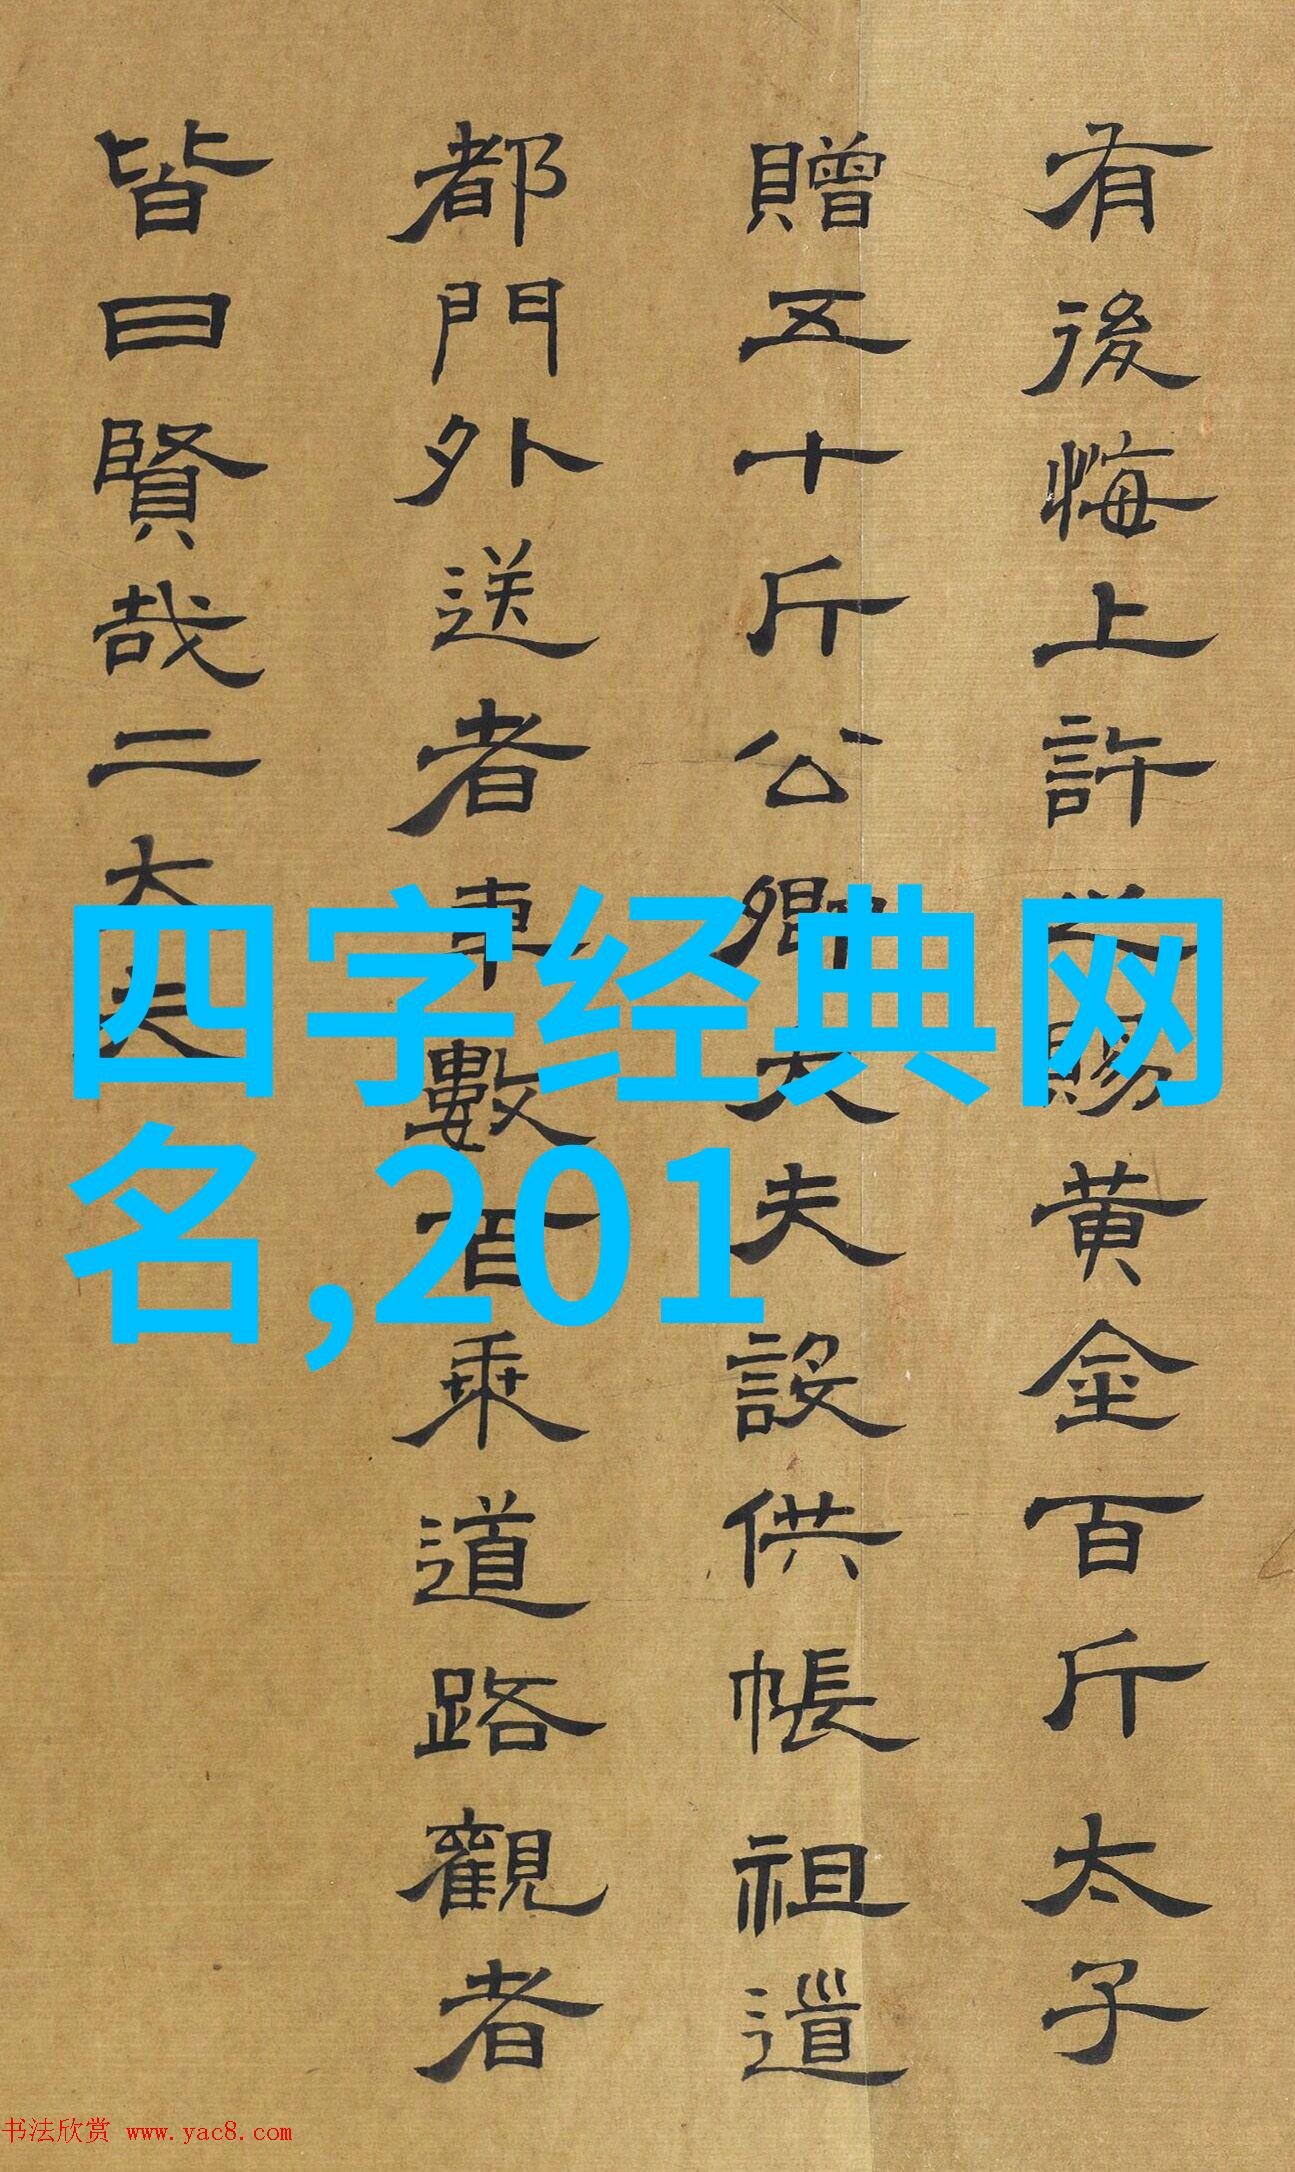 有後悔上許之賜黄金百斤太子
贈五十斤公卿大夫設供帳祖道
都門外送者車數百乘道路觀者
皆曰賢哉二大夫
四字经典网
名,201
书法欣赏 www.yac8.com